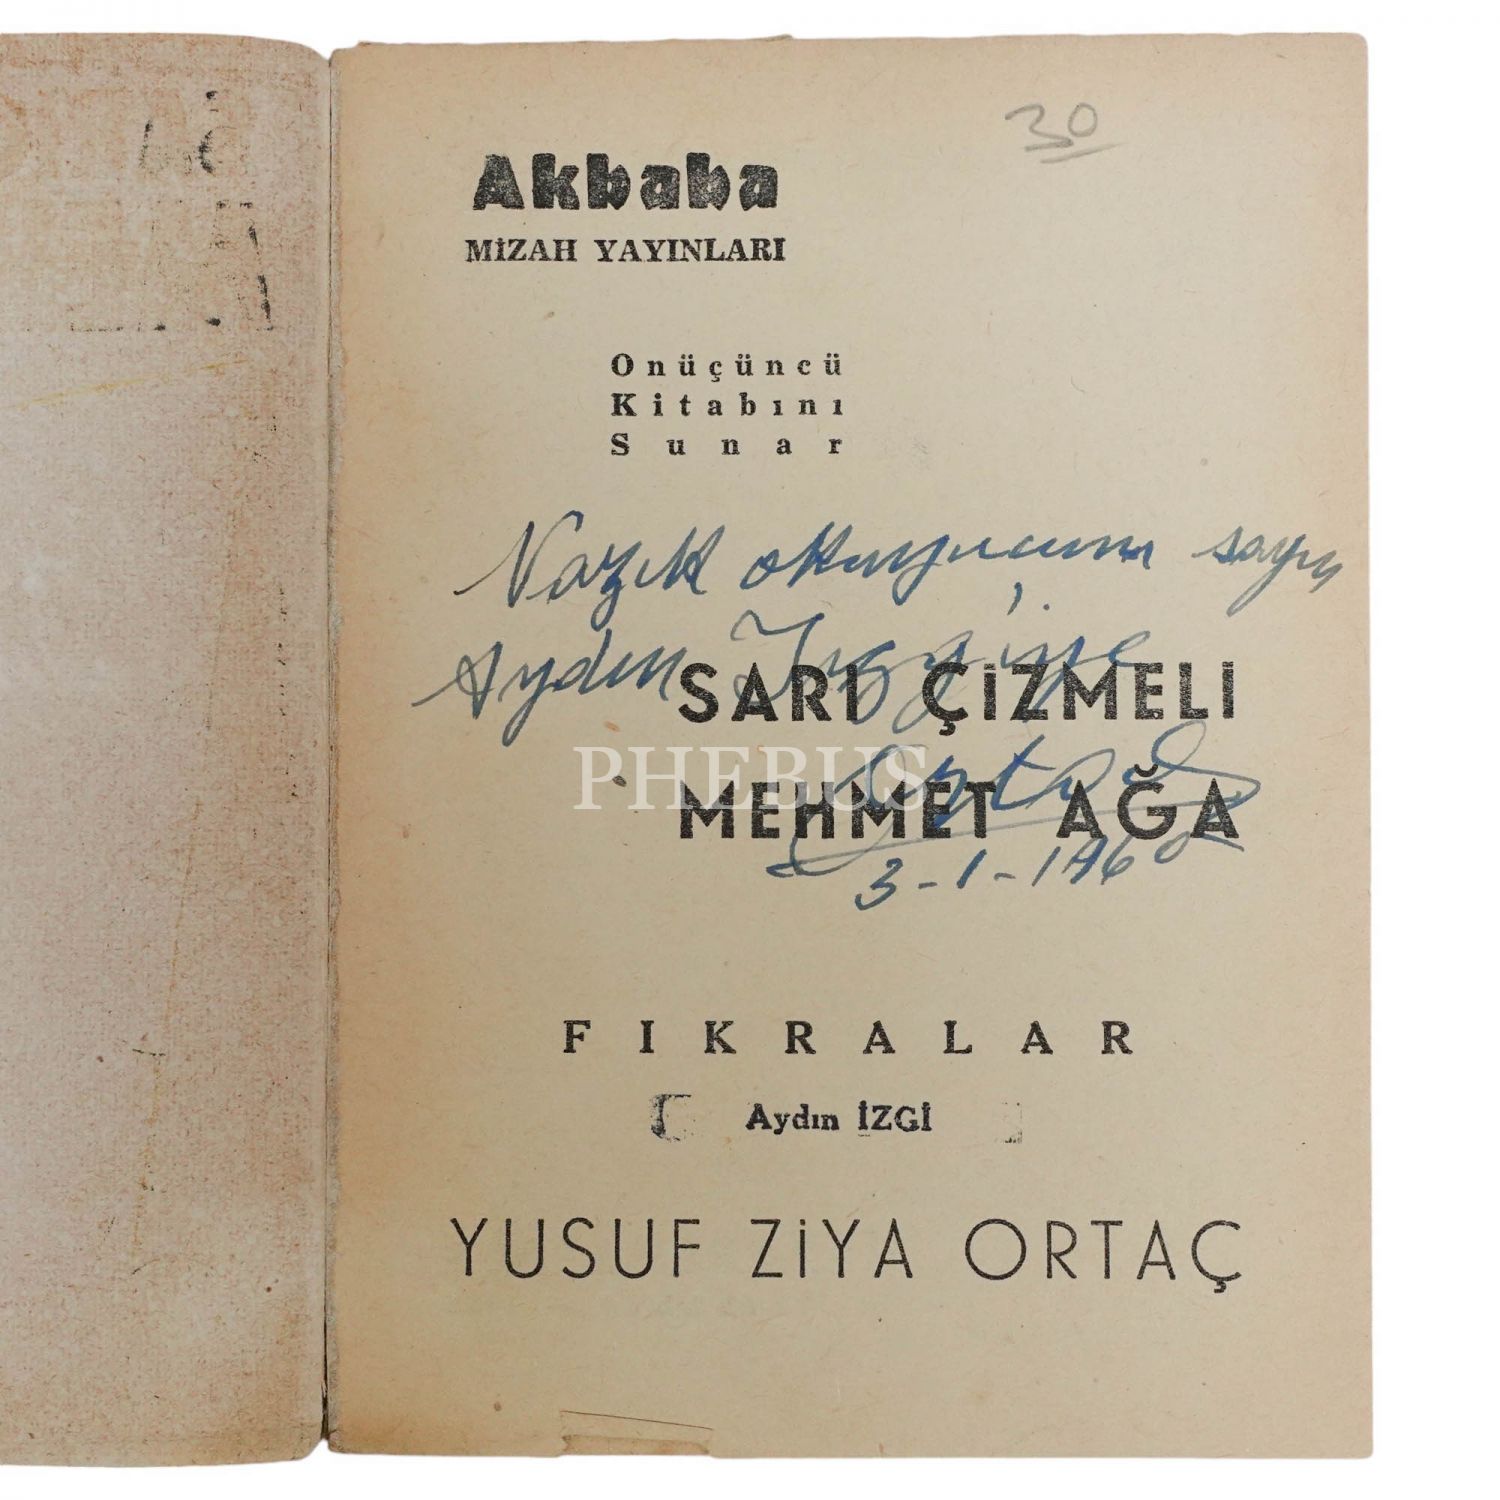 30
Akbaba
MİZAH YAYINLARI
Onüçüncü
Kitabını
Sunar
Nazik okuyucum sayın
Aydın İzgi'ye
SARI ÇİZMELİ
PHEBUS
MEHMET AĞA
Ortaç
3-1-1960
FIKRALAR
Aydın İZGİ
YUSUF ZİYA ORTAÇ